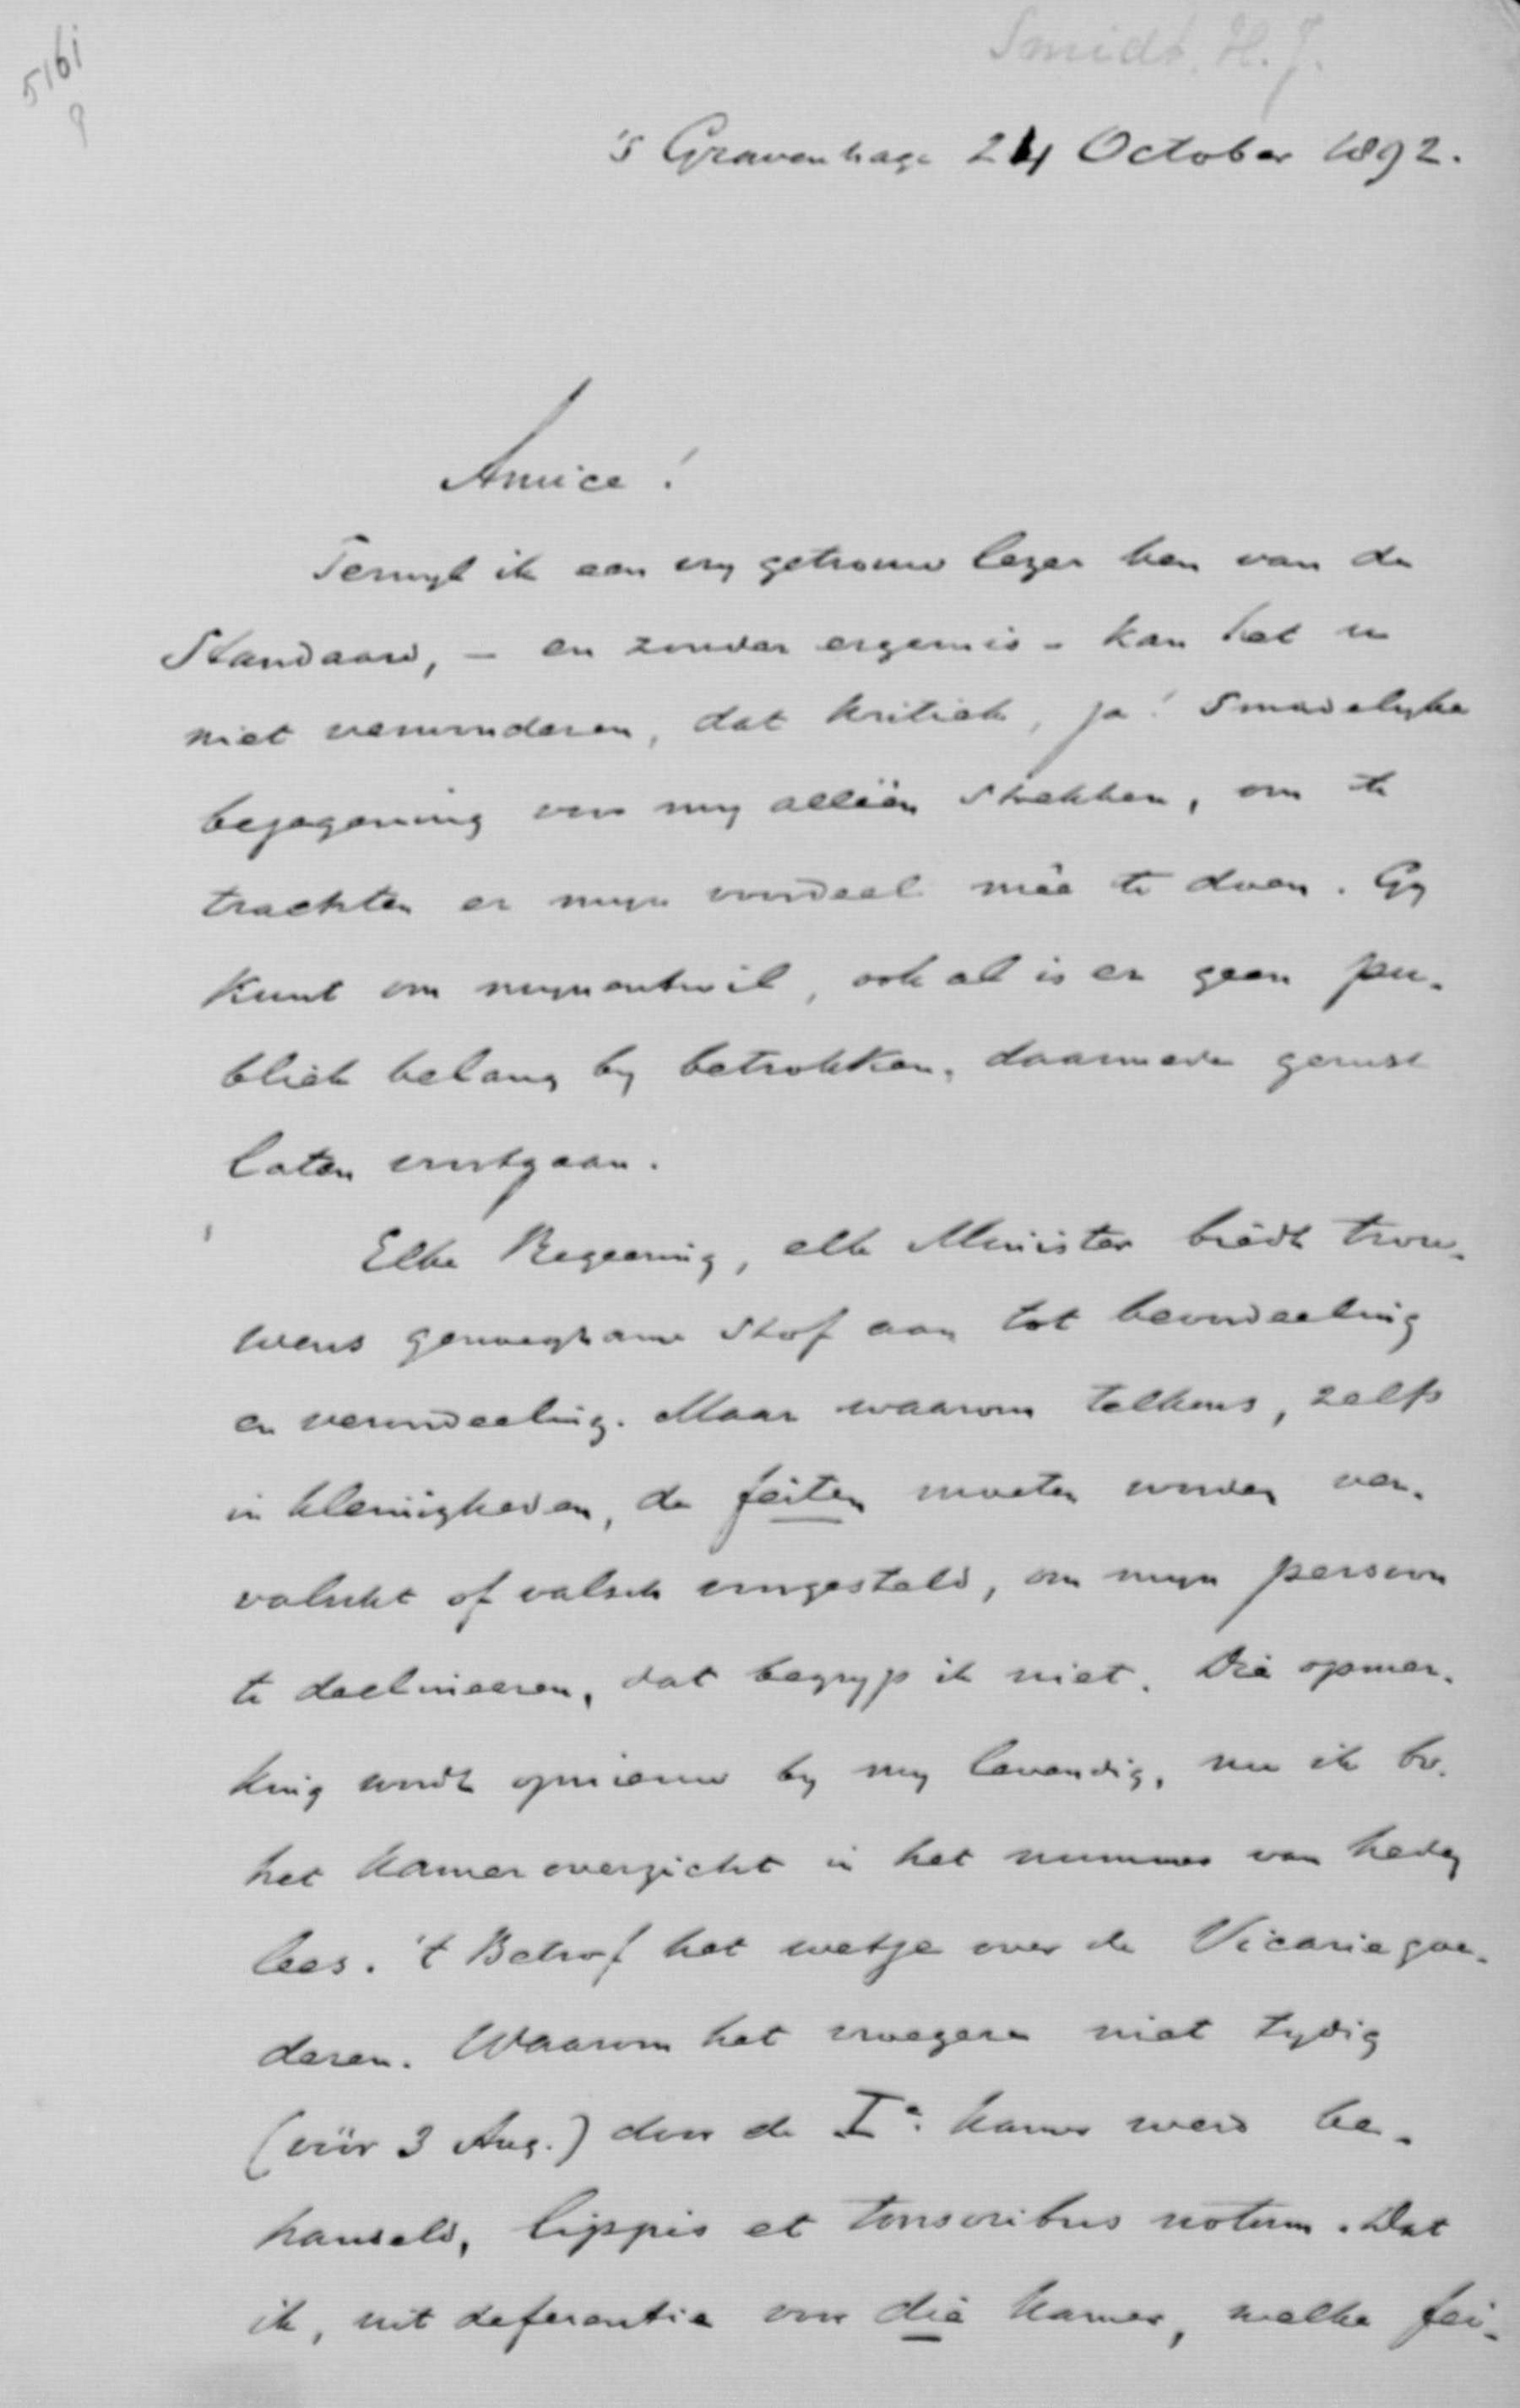 5161
Smidt. H. J.
's Gravenhage 24 October 1892.
Amice!
Terwyl ik een vry getrouw lezer ben van de
Standaard, – en zonder ergernis – kan het u
niet verwonderen, dat kritiek, ja! smadelyke
bejegening voor my alléén strekken, om te
trachten er myn voordeel mêe te doen. Gy
kunt om mynentwil, ook al is er geen pu-
bliek belang by betrokken, daarmede gerust
laten voortgaan.
Elke Regeering, elk Minister biedt trou-
wens genoegzame stof aan tot beoordeeling
en veroordeeling. Maar waarom telkens, zelfs
in kleinigheden, de feiten moeten worden ver-
valscht of valsch voorgesteld, om myn persoon
te declineeren, dat begryp ik niet. Die opmer-
king wordt opnieuw by my levendig, nu ik bv.
het Kameroverzicht in het nummer van heden
lees. 't Betrof het wetje over de Vicariegoe-
deren. Waarom het vroegere niet tydig
(vóór 3 Aug.) door de Ie. Kamer werd be-
handeld, lippis et tonsoribus notum. Dat
ik, uit deferentie voor die Kamer, welke fei-